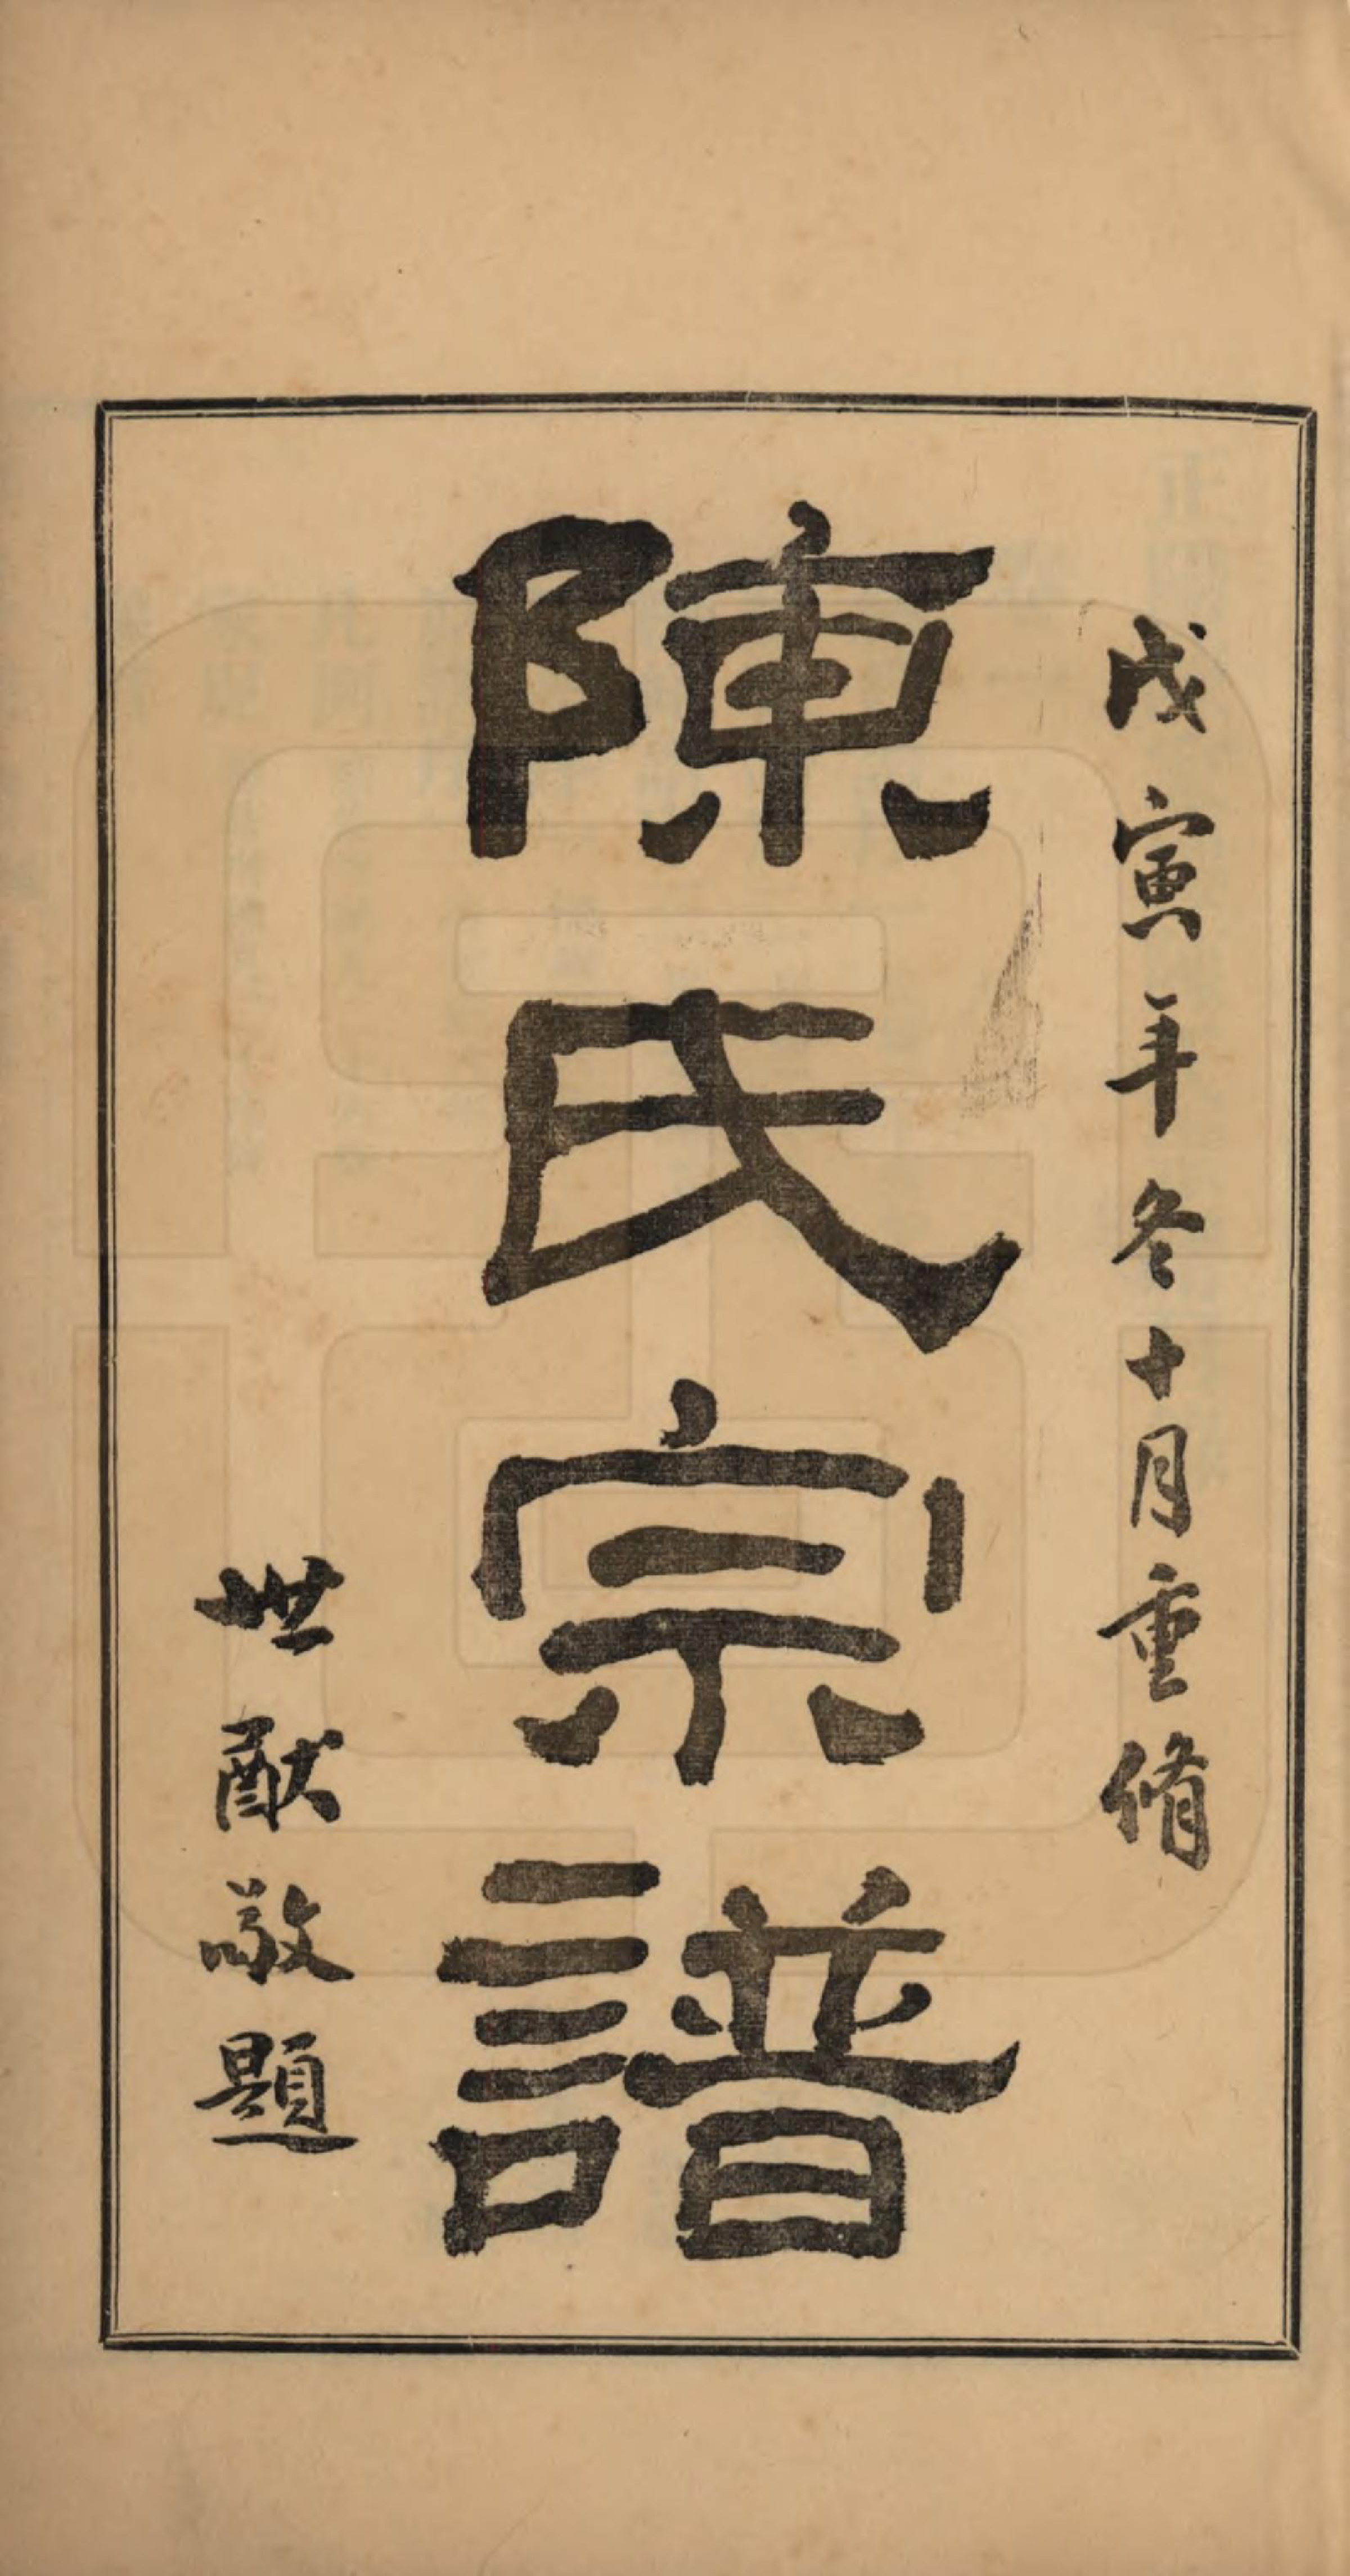 戊寅年冬十月重脩
陳氏宗譜
世猷敬題